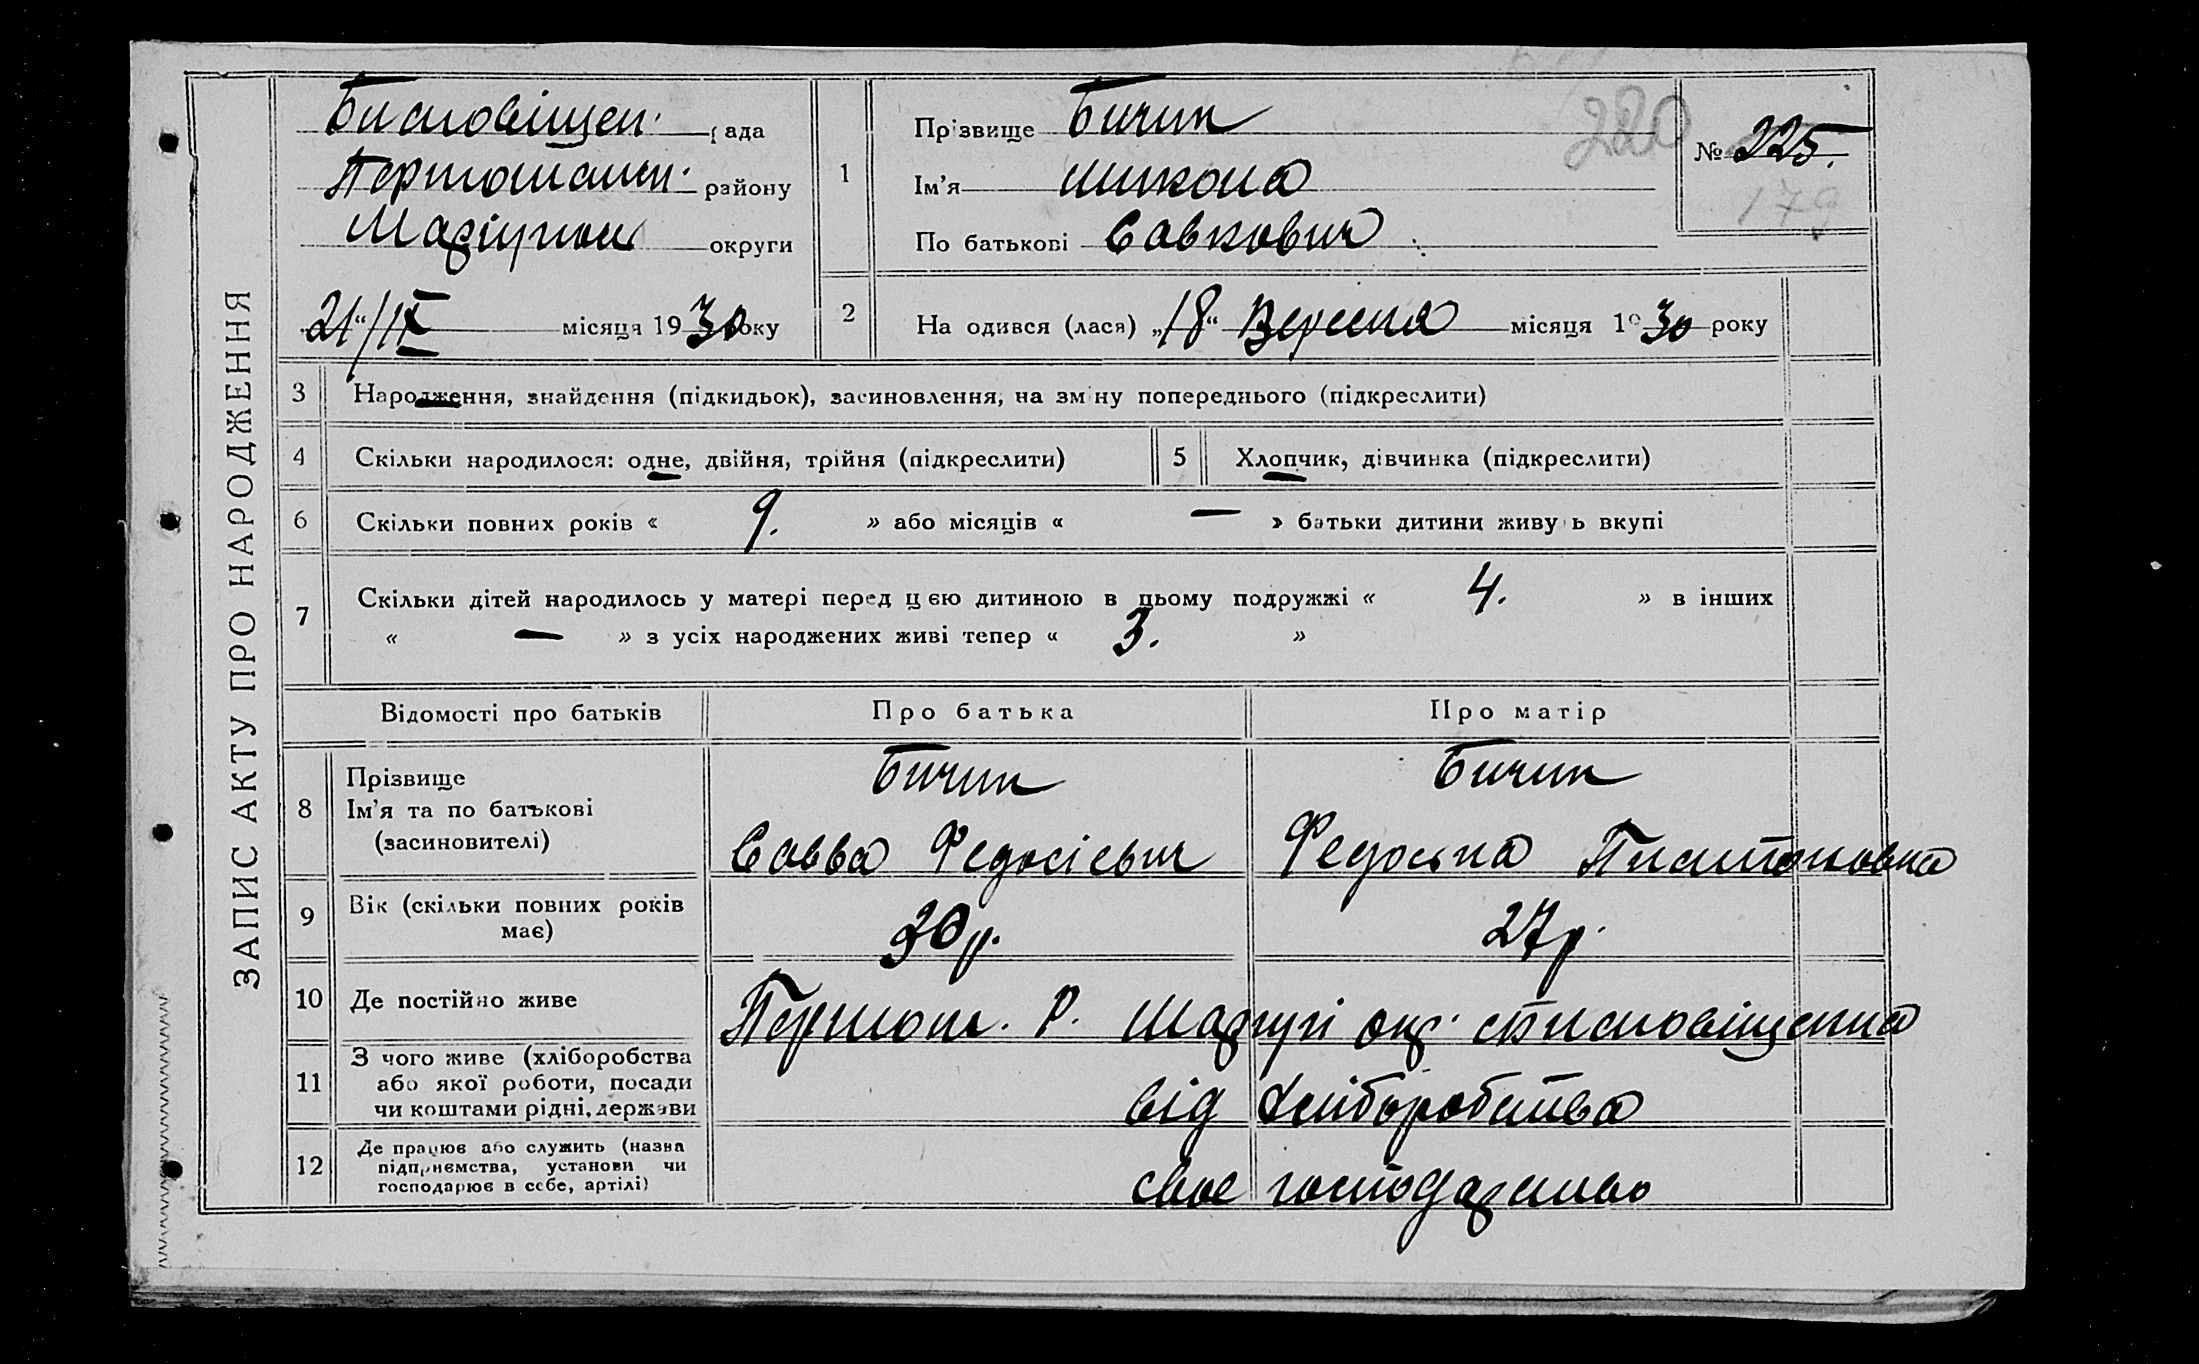 ЗАПИС АКТУ ПРО НАРОДЖЕННЯ
Благовіщен. рада
района району
округи
„21“/IX місяця 1930 року
1
Прізвище Бичик
Ім’я Микола
По батькові Савкович
220
№ 225.
179
2
На одився (лася) „18“ Вересня місяця 1930 року
3 Народження, знайдення (підкидьок), засиновлення, на зміну попереднього (підкреслити)
4 Скільки народилося: одне, двійня, трійня (підкреслити)
5 Хлопчик, дівчинка (підкреслити)
6 Скільки повних років « 9. » або місяців « — » батьки дитини живуть вкупі
7 Скільки дітей народилось у матері перед цією дитиною в цьому подружжі « 4. » в інших
« — » з усіх народжених живі тепер « 3. »
Відомості про батьків Про батька Про матір
8 Прізвище
Ім’я та по батькові
(засиновителі)
Бичик
Савва Федосієвич
Бичик
Федоська Платоновна
9 Вік (скільки повних років
має)
30 р. 27 р.
10 Де постійно живе
Р. окр.
11 З чого живе (хліборобства
або якої роботи, посади
чи коштами рідні, держави
від хліборобства
12 Де працює або служить (назва
підприємства, установи чи
господарює в себе, артілі)
своє господарство